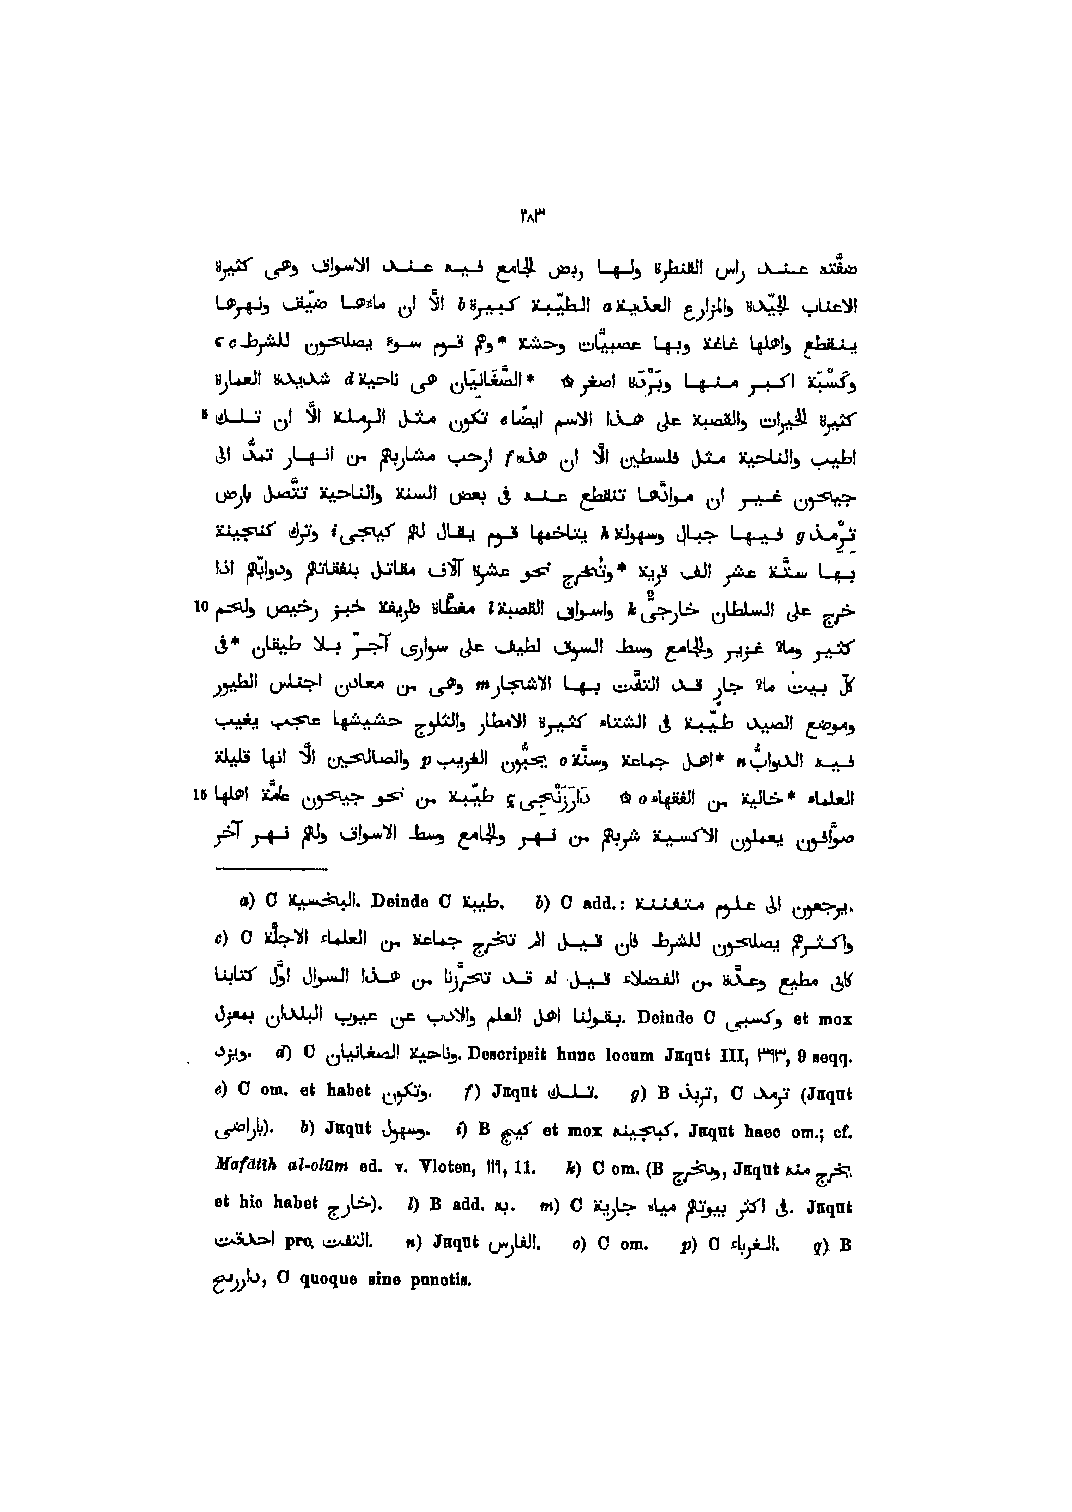 ٢٨٣
ضفّته عند راس القنطرة ولها ربض الجامع فيه عند الاسواق وهى كثيرة
الاعناب الجيّدة والمزارع العذية a الطيّبة كبيرة b الّا ان ماءها ضيّق ونهرها
ينقطع واهلها غاغة وبها عصبيّات وحشة *وهم قوم سوء يصلحون للشرط c ه
وكَسْبَة اكبر منها وبَزْدَة اصغر ۞ *الصَّغَانِيَان هى ناحية d شديدة العمارة
كثيرة الخيرات والقصبة على هذا الاسم ايضًا e تكون مثل الرملة الّا ان تلك 5
اطيب والناحية مثل فلسطين الّا ان هذه f ارحب مشاربهم من انهار تمدّ الى
جيحون غير ان موادّها تنقطع عنه فى بعض السنة والناحية تتّصل بارض
تِرْمِذ g فيها جبال وسهولة h يتاخمها قوم يقال لهم كيجى i وترك كنجينة
بها ستّة عشر الف قرية *وتُخرج نحو عشرة آلاف مقاتل بنفقاتهم ودوابّهم اذا
خرج على السلطان خارجىّ k واسواق القصبة l مغطّاة ظريفة خبز رخيص ولحم 10
كثير وماء غزير والجامع وسط السوق لطيف على سوارى آجرّ بلا طيقان *فى
كلّ بيت ماء جار قد التفّت بها الاشجار m وهى من معادن اجناس الطيور
وموضع الصيد طيّبة فى الشتاء كثيرة الامطار والثلوج حشيشها عجب يغيب
فيه الدوابّ n *اهل جماعة وسنّة o يحبّون الغريب p والصالحين الّا انها قليلة
العلماء *خالية من الفقهاء o ۞ دَارْزَنْجِى q طيّبة من نحو جيحون عامّة اهلها 15
صوّافون يعملون الاكسية شربهم من نهر والجامع وسط الاسواق ولهم نهر آخر
a) C البخسية. Deinde C طيبة. b) C add.: يرجعون الى علوم متفننة.
c) C واكثرهم يصلحون للشرط فان قيل الم تخرج جماعة من العلماء الاجلّة
كابى مطيع وعدّة من الفضلاء قيل له قد تحرّزنا من هذا السوال اوّل كتابنا
بقولنا اهل العلم والادب عن عيوب البلدان بمعزل. Deinde C وكسبى et mox
ويزد. d) C وناحية الصغانيان. Descripsit hunc locum Jaqut III, ٣٩٣, 9 seqq.
e) C om. et habet وتكون. f) Jaqut تلك. g) B تربذ, C ترمد (Jaqut
باراضى). h) Jaqut وسهول. i) B كيج et mox كباجينه. Jaqut haec om.; cf.
Mafâtîh al-olûm ed. v. Vloten, ١١٩, 11. k) C om. (B ويخرج, Jaqut يخرج منه
et hic habet خارج). l) B add. به. m) C فى اكثر بيوتهم مياه جارية. Jaqut
احدقت pro التفت. n) Jaqut الفارس. o) C om. p) C الغرباء. q) B
داررىج, C quoque sine punctis.